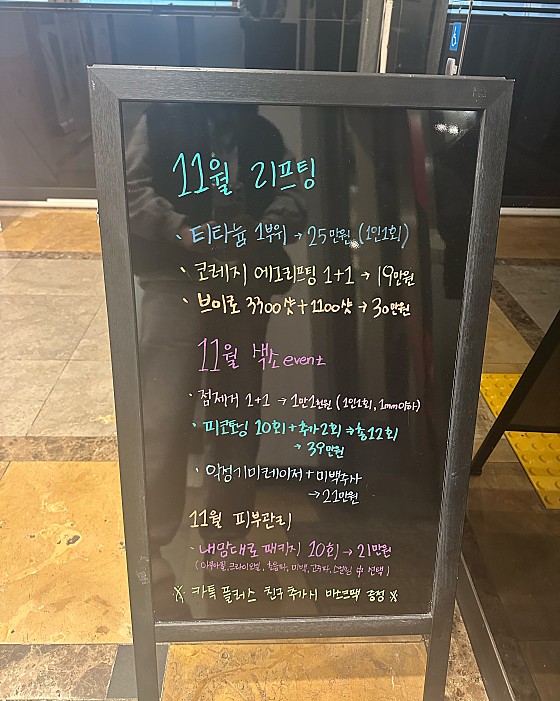 11월 리프팅
· 티타늄 1부위 → 25만원 (1인1회)
· 코레지 에그리프팅 1+1 → 19만원
· 브이로 3300샷 + 1100샷 → 30만원
11월 색소 event
· 점제거 1+1 → 1만1천원 (1인1회, 1mm이하)
· 피코토닝 10회 + 추가2회 ⇒ 총12회
→ 39만원
· 악성기미레이저 + 미백주사
→ 21만원
11월 피부관리
· 내맘대로 패키지 10회 → 21만원
(아쿠아필, 크라이오셀, 초음파, 미백, 고주파, 스킬링 中 선택)
※ 카톡 플러스 친구 추가시 마스크팩 증정 ※